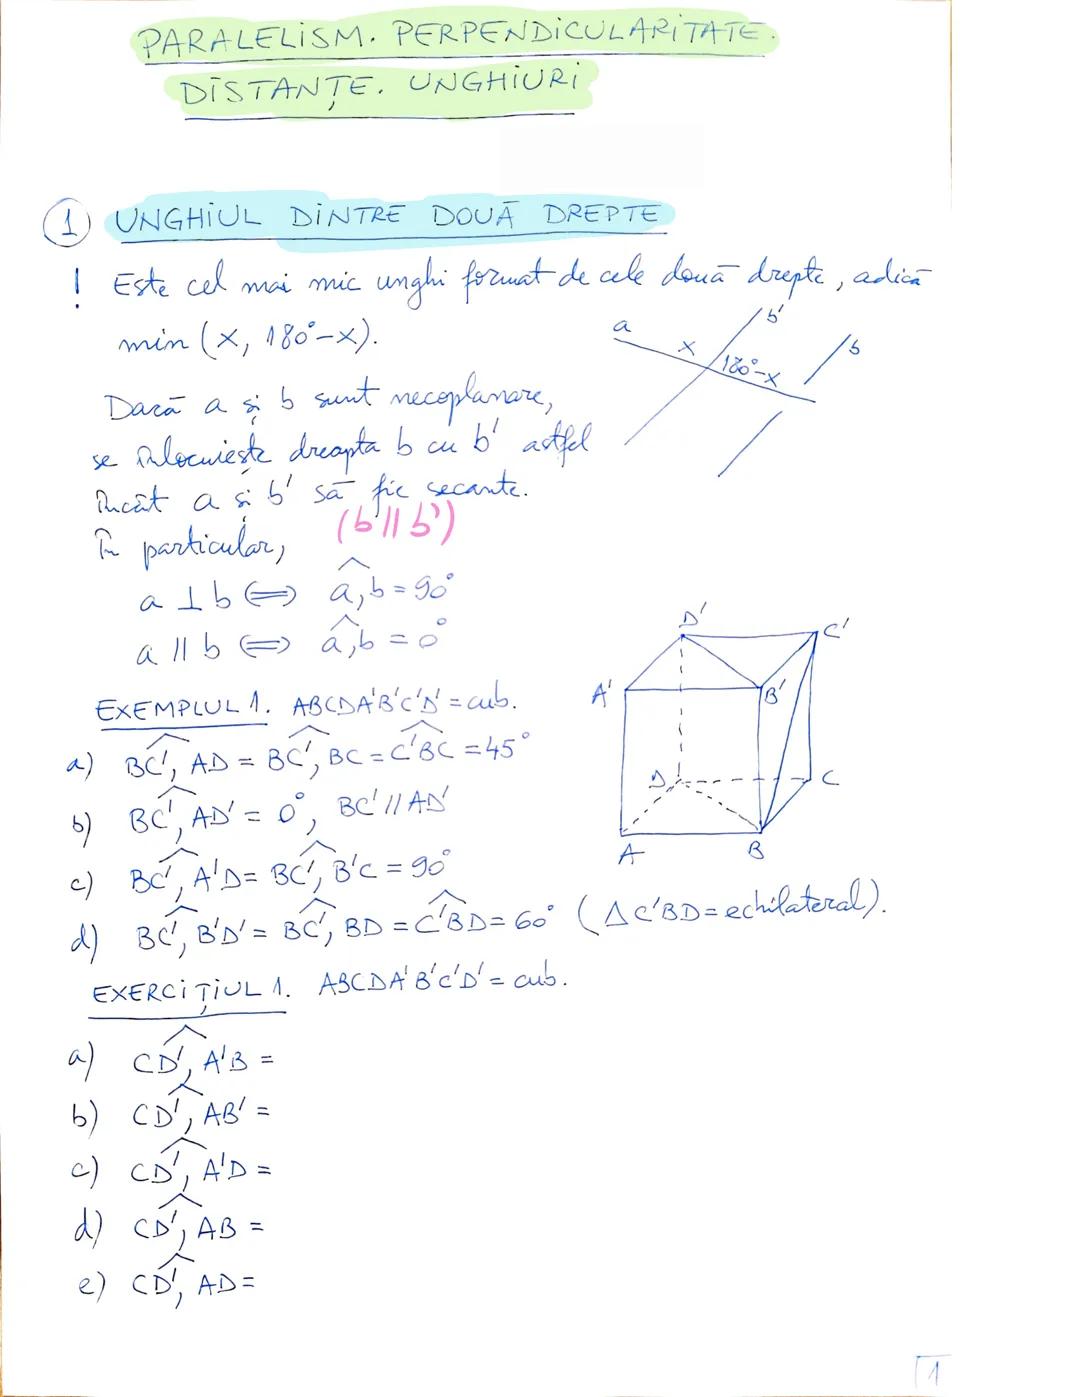 PARALELISM. PERPENDICULARITATE.
DISTANȚE. UNGHIURI
1 UNGHIUL DINTRE DOUĂ DREPTE
! Este cel mai mic unghi format de cele două drepte, adică
min (x, 180°-x).
a x b' 180°-x b
Dacă a și b sunt necoplanare,
se înlocuiește dreapta b cu b' astfel
încât a și b' să fie secante.
(b || b')
În particular,
a ⊥ b ⟺ a,b = 90°
a || b ⟺ a,b = 0°
D' C'
A' B'
D C
A B
EXEMPLUL 1. ABCDA'B'C'D' = cub.
a) BC', AD = BC', BC = C'BC = 45°
b) BC', AD' = 0°, BC' || AD'
c) BC', A'D = BC', B'C = 90°
d) BC', B'D' = BC', BD = C'BD = 60° (Δ C'BD = echilateral).
EXERCIȚIUL 1. ABCDA'B'C'D' = cub.
a) CD', A'B =
b) CD', AB' =
c) CD', A'D =
d) CD', AB =
e) CD', AD =
1